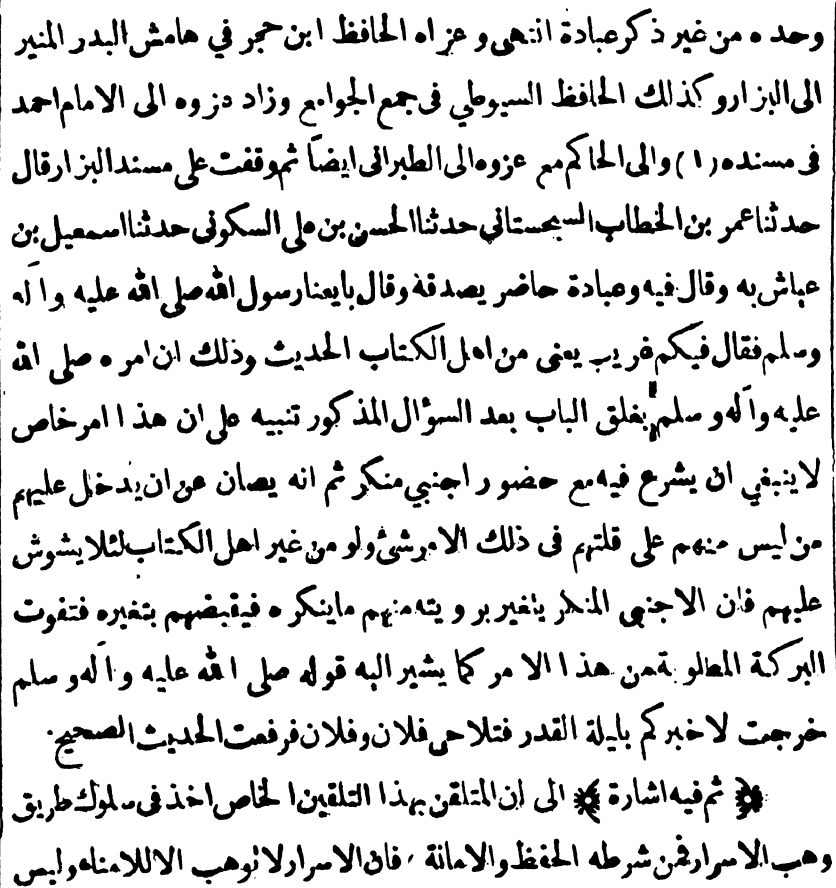 وحده من غير ذكر عبادة انتهى وعزاه الحافظ ابن حجر في هامش البدر المنير
الى البزار وكذلك الحافظ السيوطي فى جمع الجوامع وزاد دزوه الى الامام احمد
فى مسنده (١) والى الحاكم مع عزوه الى الطبرانى ايضاً ثم وقفت على مسند البزار قال
حدثنا عمر بن الخطاب السجستاني حدثنا الحسن بن على السكونى حدثنا اسمعيل بن
عياش به وقال فيه وعبادة حاضر يصدقه وقال بايعنا رسول الله صلى الله عليه وآله
وسلم فقال فيكم غريب يعنى من اهل الكتاب الحديث وذلك ان امره صلى الله
عليه وآله وسلم بغلق الباب بعد السؤال المذكور تنبيه على ان هذا امر خاص
لاينبغي ان يشرع فيه مع حضور اجنبي منكر ثم انه يصان عن ان يدخل عليهم
من ليس منهم على قلتهم فى ذلك الامر شئ ولو من غير اهل الكتاب لئلا يشوش
عليهم فان الاجنبي المنكر يتغير برويته منهم ماينكره فيقبضهم بتغيره فتفوت
البركة المطلوبة من هذا الامر كما يشير اليه قوله صلى الله عليه وآله وسلم
خرجت لاخبركم بليلة القدر فتلاحى فلان وفلان فرفعت الحديث الصحيح٠
﴿ ثم فيه اشارة ﴾ الى ان المتلقن بهذا التلقين الخاص اخذ فى سلوك طريق
وهب الاسرار فمن شرطه الحفظ والامانة ، فان الاسرار لا توهب الا للامناء وليس